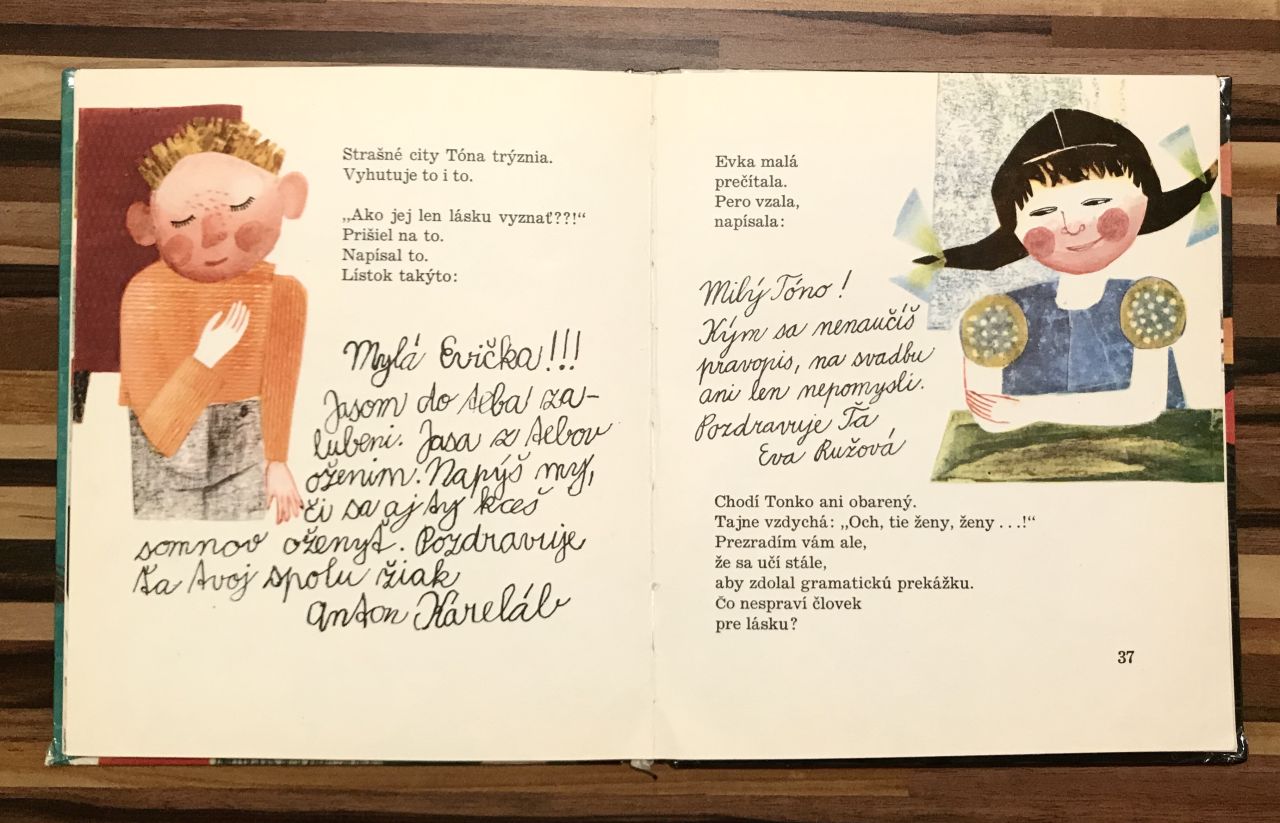 Strašné city Tóna trýznia.
Vyhutuje to i to.
„Ako jej len lásku vyznať??!“
Prišiel na to.
Napísal to.
Lístok takýto:
Mylá Evička!!!
Jasom do teba za-
lubeni. Jasa z tebov
oženim. Napýš my,
či sa aj ty kceš
somnov oženyť. Pozdravuje
ťa tvoj spolu žiak
Anton Kareláb
Evka malá
prečítala.
Pero vzala,
napísala:
Milý Tóno!
Kým sa nenaučíš
pravopis, na svadbu
ani len nepomysli.
Pozdravuje Ťa
Eva Ružová
Chodí Tonko ani obarený.
Tajne vzdychá: „Och, tie ženy, ženy ...!“
Prezradím vám ale,
že sa učí stále,
aby zdolal gramatickú prekážku.
Čo nespraví človek
pre lásku?
37